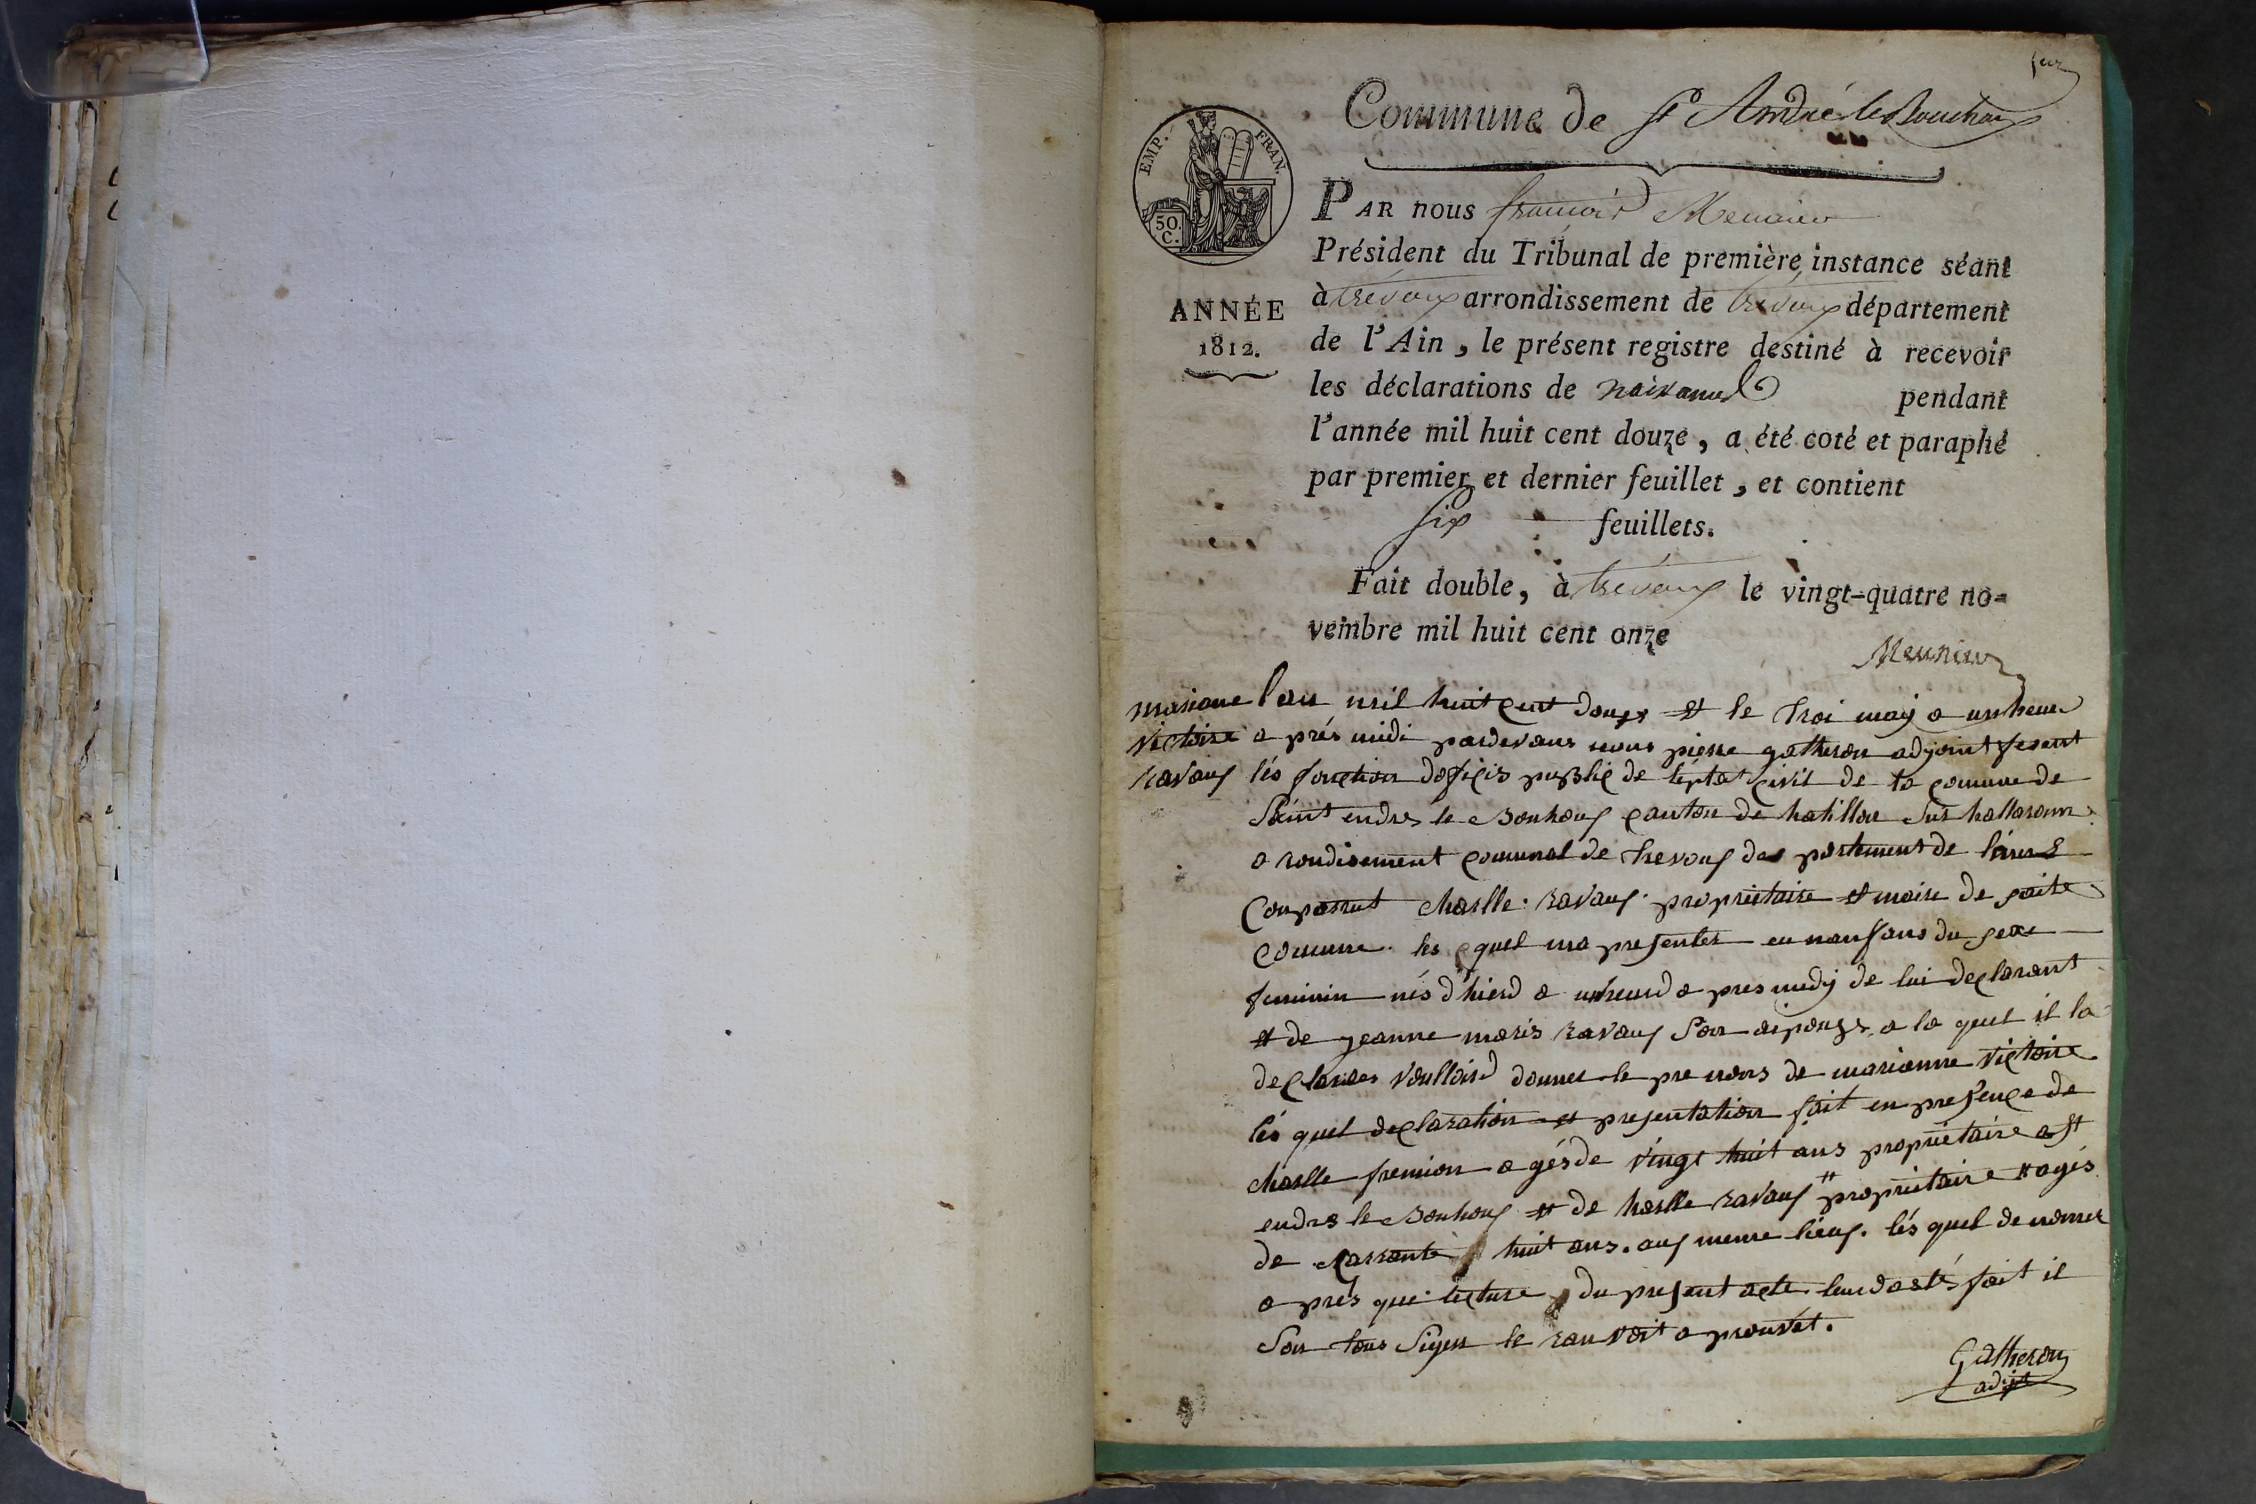 Commune de St André le Bouchoux
EMP. FRAN.
50. C.
ANNÉE
1812.
PAR nous françois Meunier
Président du Tribunal de première instance séant
à trévoux arrondissement de trévoux département
de l'Ain, le présent registre destiné à recevoir
les déclarations de naissances pendant
l'année mil huit cent douze, a été coté et paraphé
par premier et dernier feuillet, et contient
six feuillets.
Fait double, à trévoux le vingt-quatre no=
vembre mil huit cent onze
Meunier
mariane
victoire
ravaux
l'an mil huit cent douze et le troi may a un heure
a prés midi pardevans nous pierre gatheron adjoint fesent
lés fonction doficis public de léptat civil de la comune de
Saint endres le Bouhoux canton de hatillon sur hallaronne
a rondisement comunal de trevoux des partement de
Comparut charlle ravaux propriétaire et maire de
comune les quel ma presenter eu nanfans du sexe
feminin nés d'hierd a unheurd a pres midy de lui declarant
et de jeanne maris ravaux son aipouze a la quel il la
declarer voulloird donner le pre nons de marianne victoire
lés quel declaration et presentation fait en presence de
charlle fremion a gésde vingt huit ans propriétaire a st
endres le Bouhoux et de harlle ravaux propriétaire agés
de carrante huit ans. aux meme lieux. lés quel de nomer
a prés que lecture du present acte leurd astés fait il
son tous signer le
Gatheron
adjt